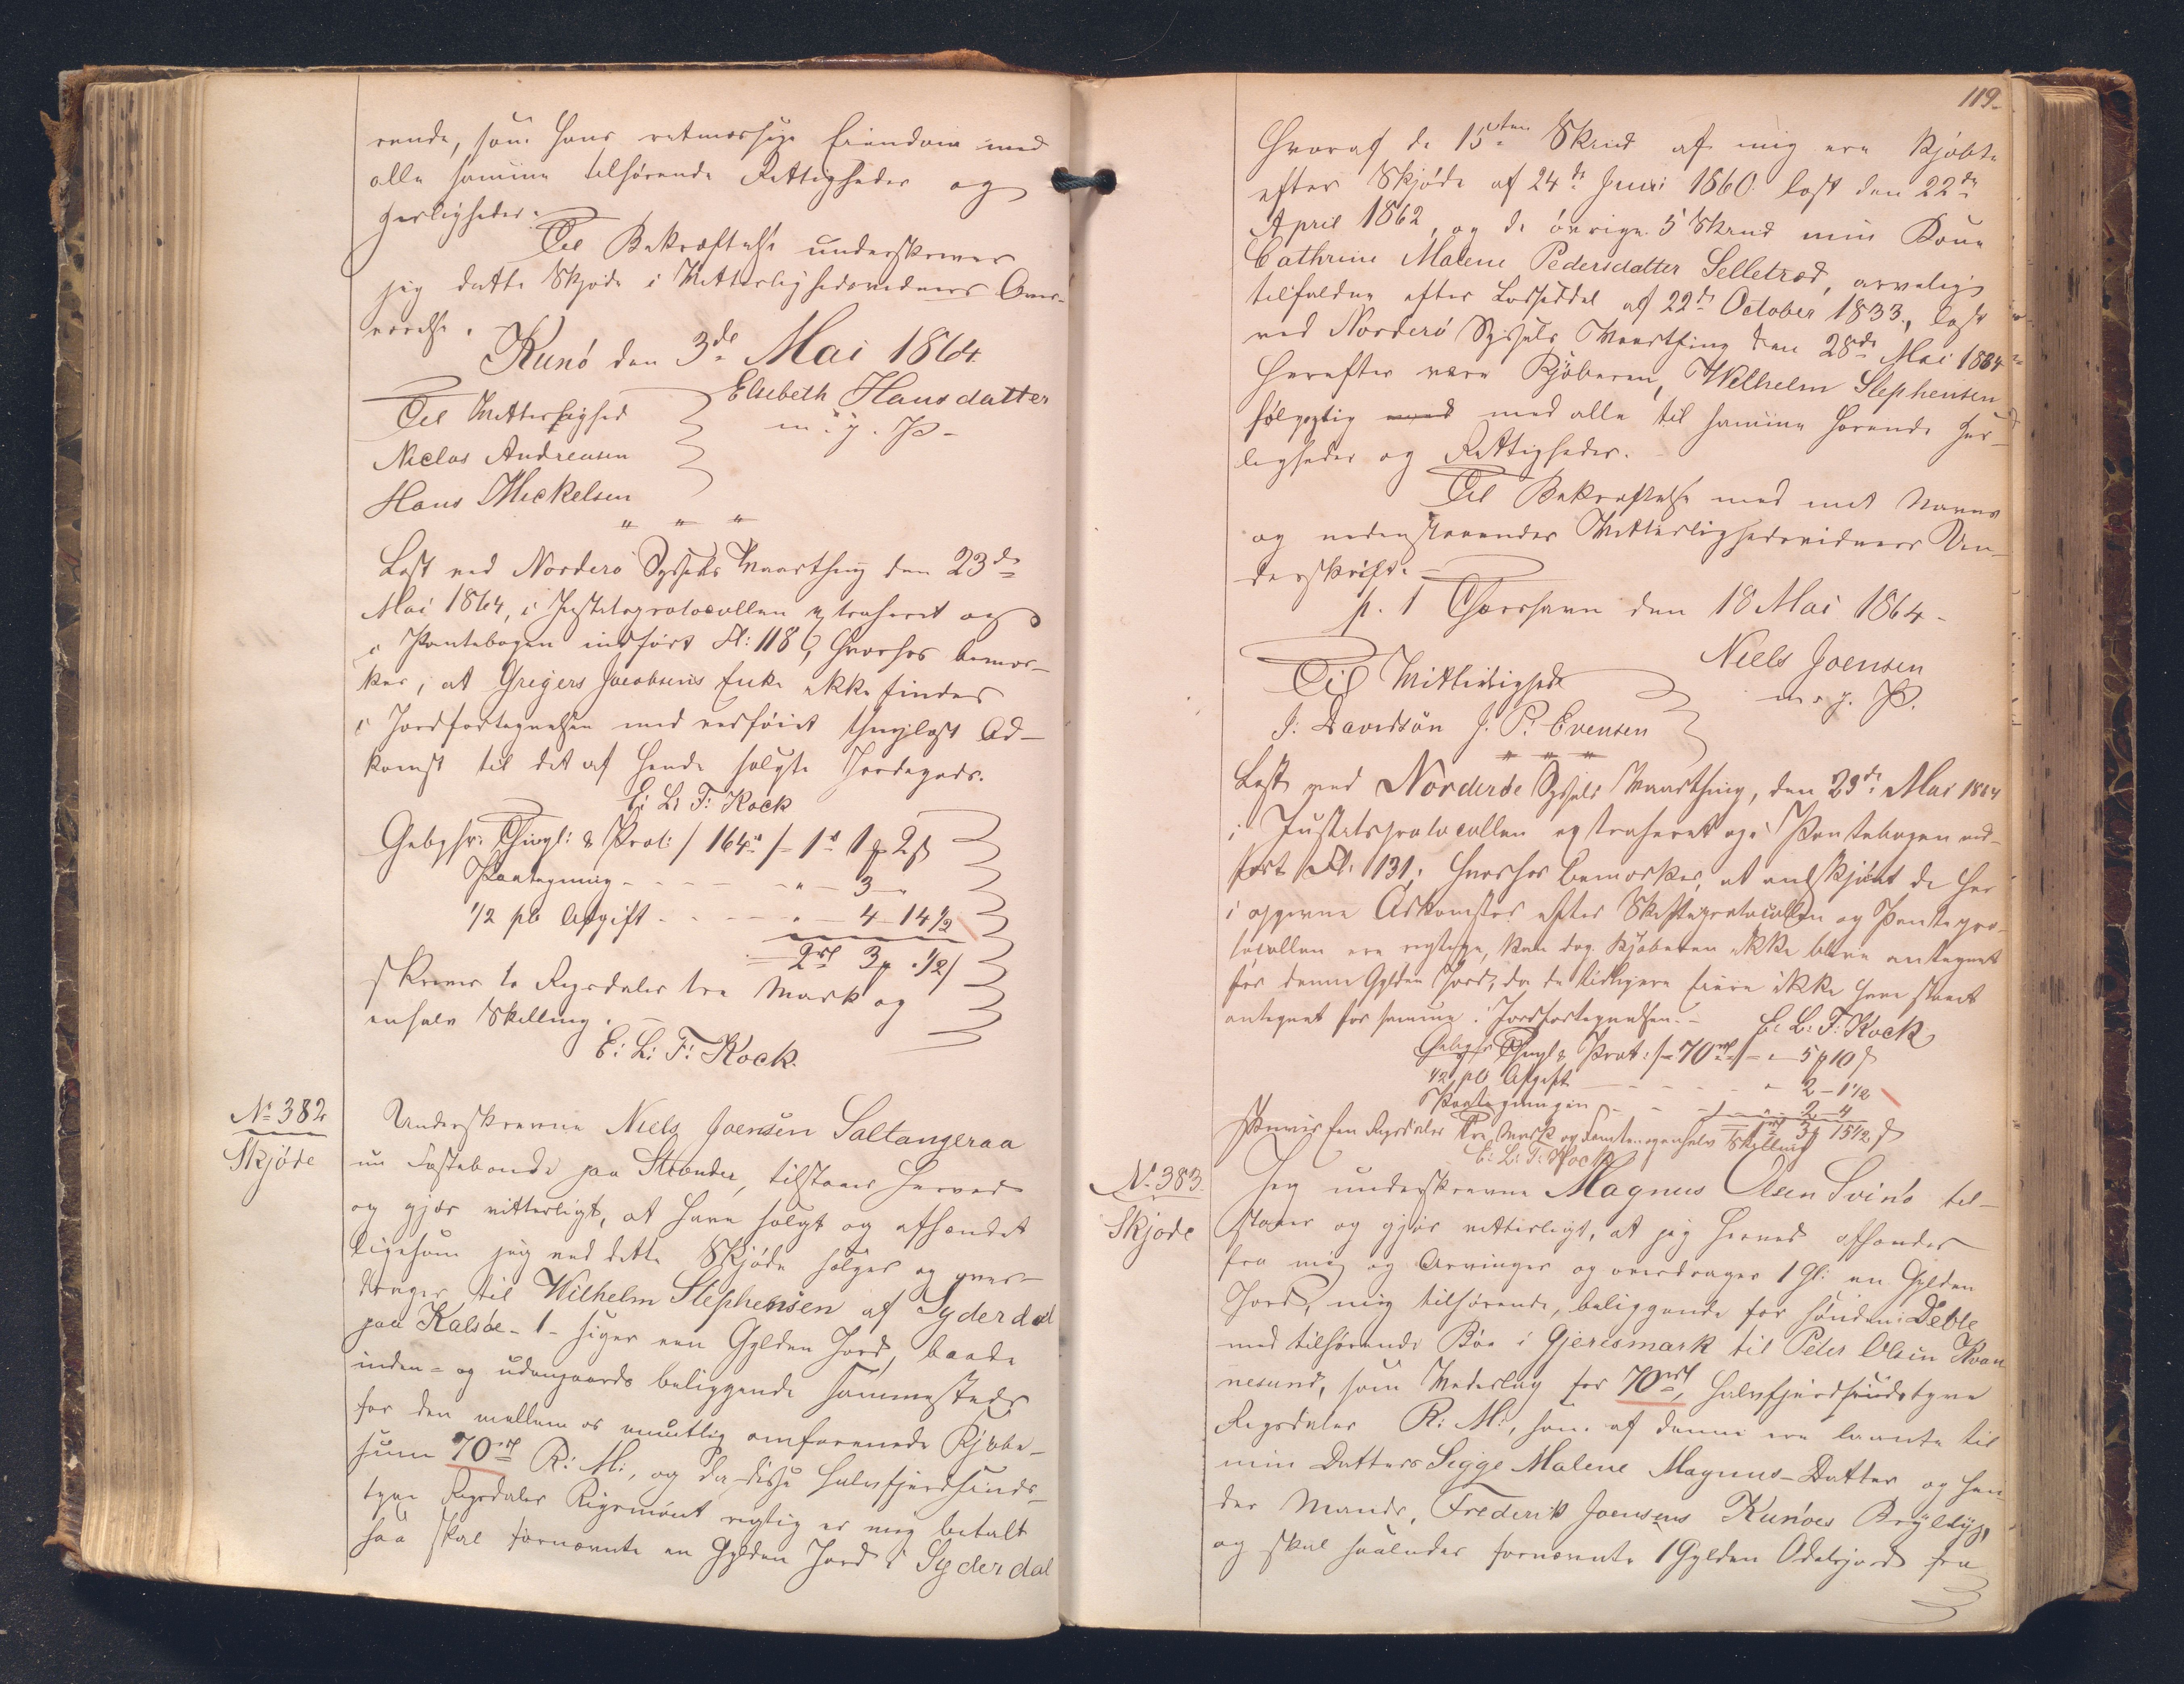 rende, som hans retmæssige Eiendom med
alle samme tilhørende Rettigheder og
Herligheder.
Til Bekræftelse underskriver
jeg dette Skjøde i Vitterlighedsvidners Over-
værelse.
Kunö den 3de Mai 1864
Elsebeth Hansdatter
m. i. g. P.
Til Vitterlighed
Niclas Andreasen
Hans Mickelsen
" " "
Læst ved Norderö Syssels Vaarthing den 23de
Mai 1864, i Justitsprotocollen extraheret og
i Pantebogen indført Fl: 118, hvorhos bemær-
kes, at Gregers Jacobsens Enke ikke findes
i Jordfortegnelsen med vedføiet thinglæst Ad-
komst til det af hende solgte Jordegods.
E: L: T: Kock
Gebyhr: Thingl: & Prot: / 164rd / - 1rd 1 2
Paategning - - - " - 3 -
1/2 pC Afgift - - - " - 4 14 1/2
2rd 3 1/2
skriver to Rigsdaler tre Mark og
en halv Skilling.
E: L: T: Kock
No 382
Skjöde
Underskrevne Niels Joensen Saltangeraa
nu Fæstebonde paa Strænder, tilstaaer herved
og gjør vitterligt, at have solgt og afhændet
ligesom jeg ved dette Skjöde sælger og over-
drager til Wilhelm Stephensen af Syderdal
paa Kalsöe - 1 - siger een Gylden Jord, baade
inden- og udengaards beliggende sammesteds
for den mellem os mundtlig omforenede Kjøbe-
sum 70rd R: M:, og da disse halvfjerdsinds-
tyve Rigsdaler Rigsmønt rigtig er mig betalt
saa skal fornævnte en Gylden Jord i Syderdal
119.
hvoraf de 15ten Skind af mig ere kjøbte
efter Skjöde af 24de Juni 1860 læst den 22de
April 1862, og de övrige 5 Skind min Kone
Cathrine Malene Pedersdatter Selletræd, arvelig
tilfalden efter Lodseddel af 22de October 1833, læst
ved Norderö Syssels Vaarthing den 28de Mai 1834
herefter være Kjøberen, Wilhelm Stephensen
følgagtig med alle til samme hørende Her-
ligheder og Rettigheder.
Til Bekræftelse med mit Navns
og nedenstaaendes Vitterlighedsvidners Un-
derskrift.
p. t. Thorshavn den 18 Mai 1864 -
Niels Joensen
m. i. g. P.
Til Vitterlighed
J: Davidsön J. P. Evensen
" " "
Læst ved Norderöe Syssels Vaarthing, den 23de Mai 1864
i Justitsprotocollen extraheret og i Pantebogen ind-
ført Fl: 131, hvorhos bemærkes, at endskjøndt de her
i opgivne Adkomster efter Skifteprotocollen og Pantepro-
tocollen ere rigtige, kan dog Kjøberen ikke blive antegnet
for denne Gylden Jord, da de tidligere Eiere ikke have staaet
antegnet for samme i Jordfortegnelsen. -
E: L: T: Kock
Gebyhr Thingl & Prot: /-70rd/- " 5 10
1/2 pC Afgift - - - " 2 - 1 1/2
Paategningen - - - " 2 - 4
1rd 3 15 1/2
Skriver Een Rigsdaler Tre Mark og Femten og en halv Skilling
E: L: T: Kock
No 383.
Skjöde
Jeg underskrevne Magnus Olsen Svinö til-
staaer og gjør vitterligt, at jeg herved afhænder
fra mig og Arvinger og overdrager 1 Gl: en Gylden
Jord, mig tilhørende, beliggende for sønden: Deble
med tilhørende Böe i Gjerismark til Peter Olsen Kvan
nesund, som Vederlag for 70rd, halvfjerdsindstyve
Rigsdaler R: M:, som af denne ere laante til
min Datters Sigge Malene Magnus-Datter og hen-
des Mands, Frederik Joensens Kunöes Bryllup,
og skal saaledes fornævnte 1 Gylden Odelsjord fra